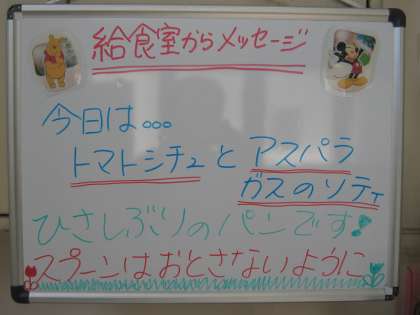 給食室からメッセージ
今日は。。。
トマトシチュとアスパラ
ガスのソティ
ひさしぶりのパンです♪
スプーンはおとさないように